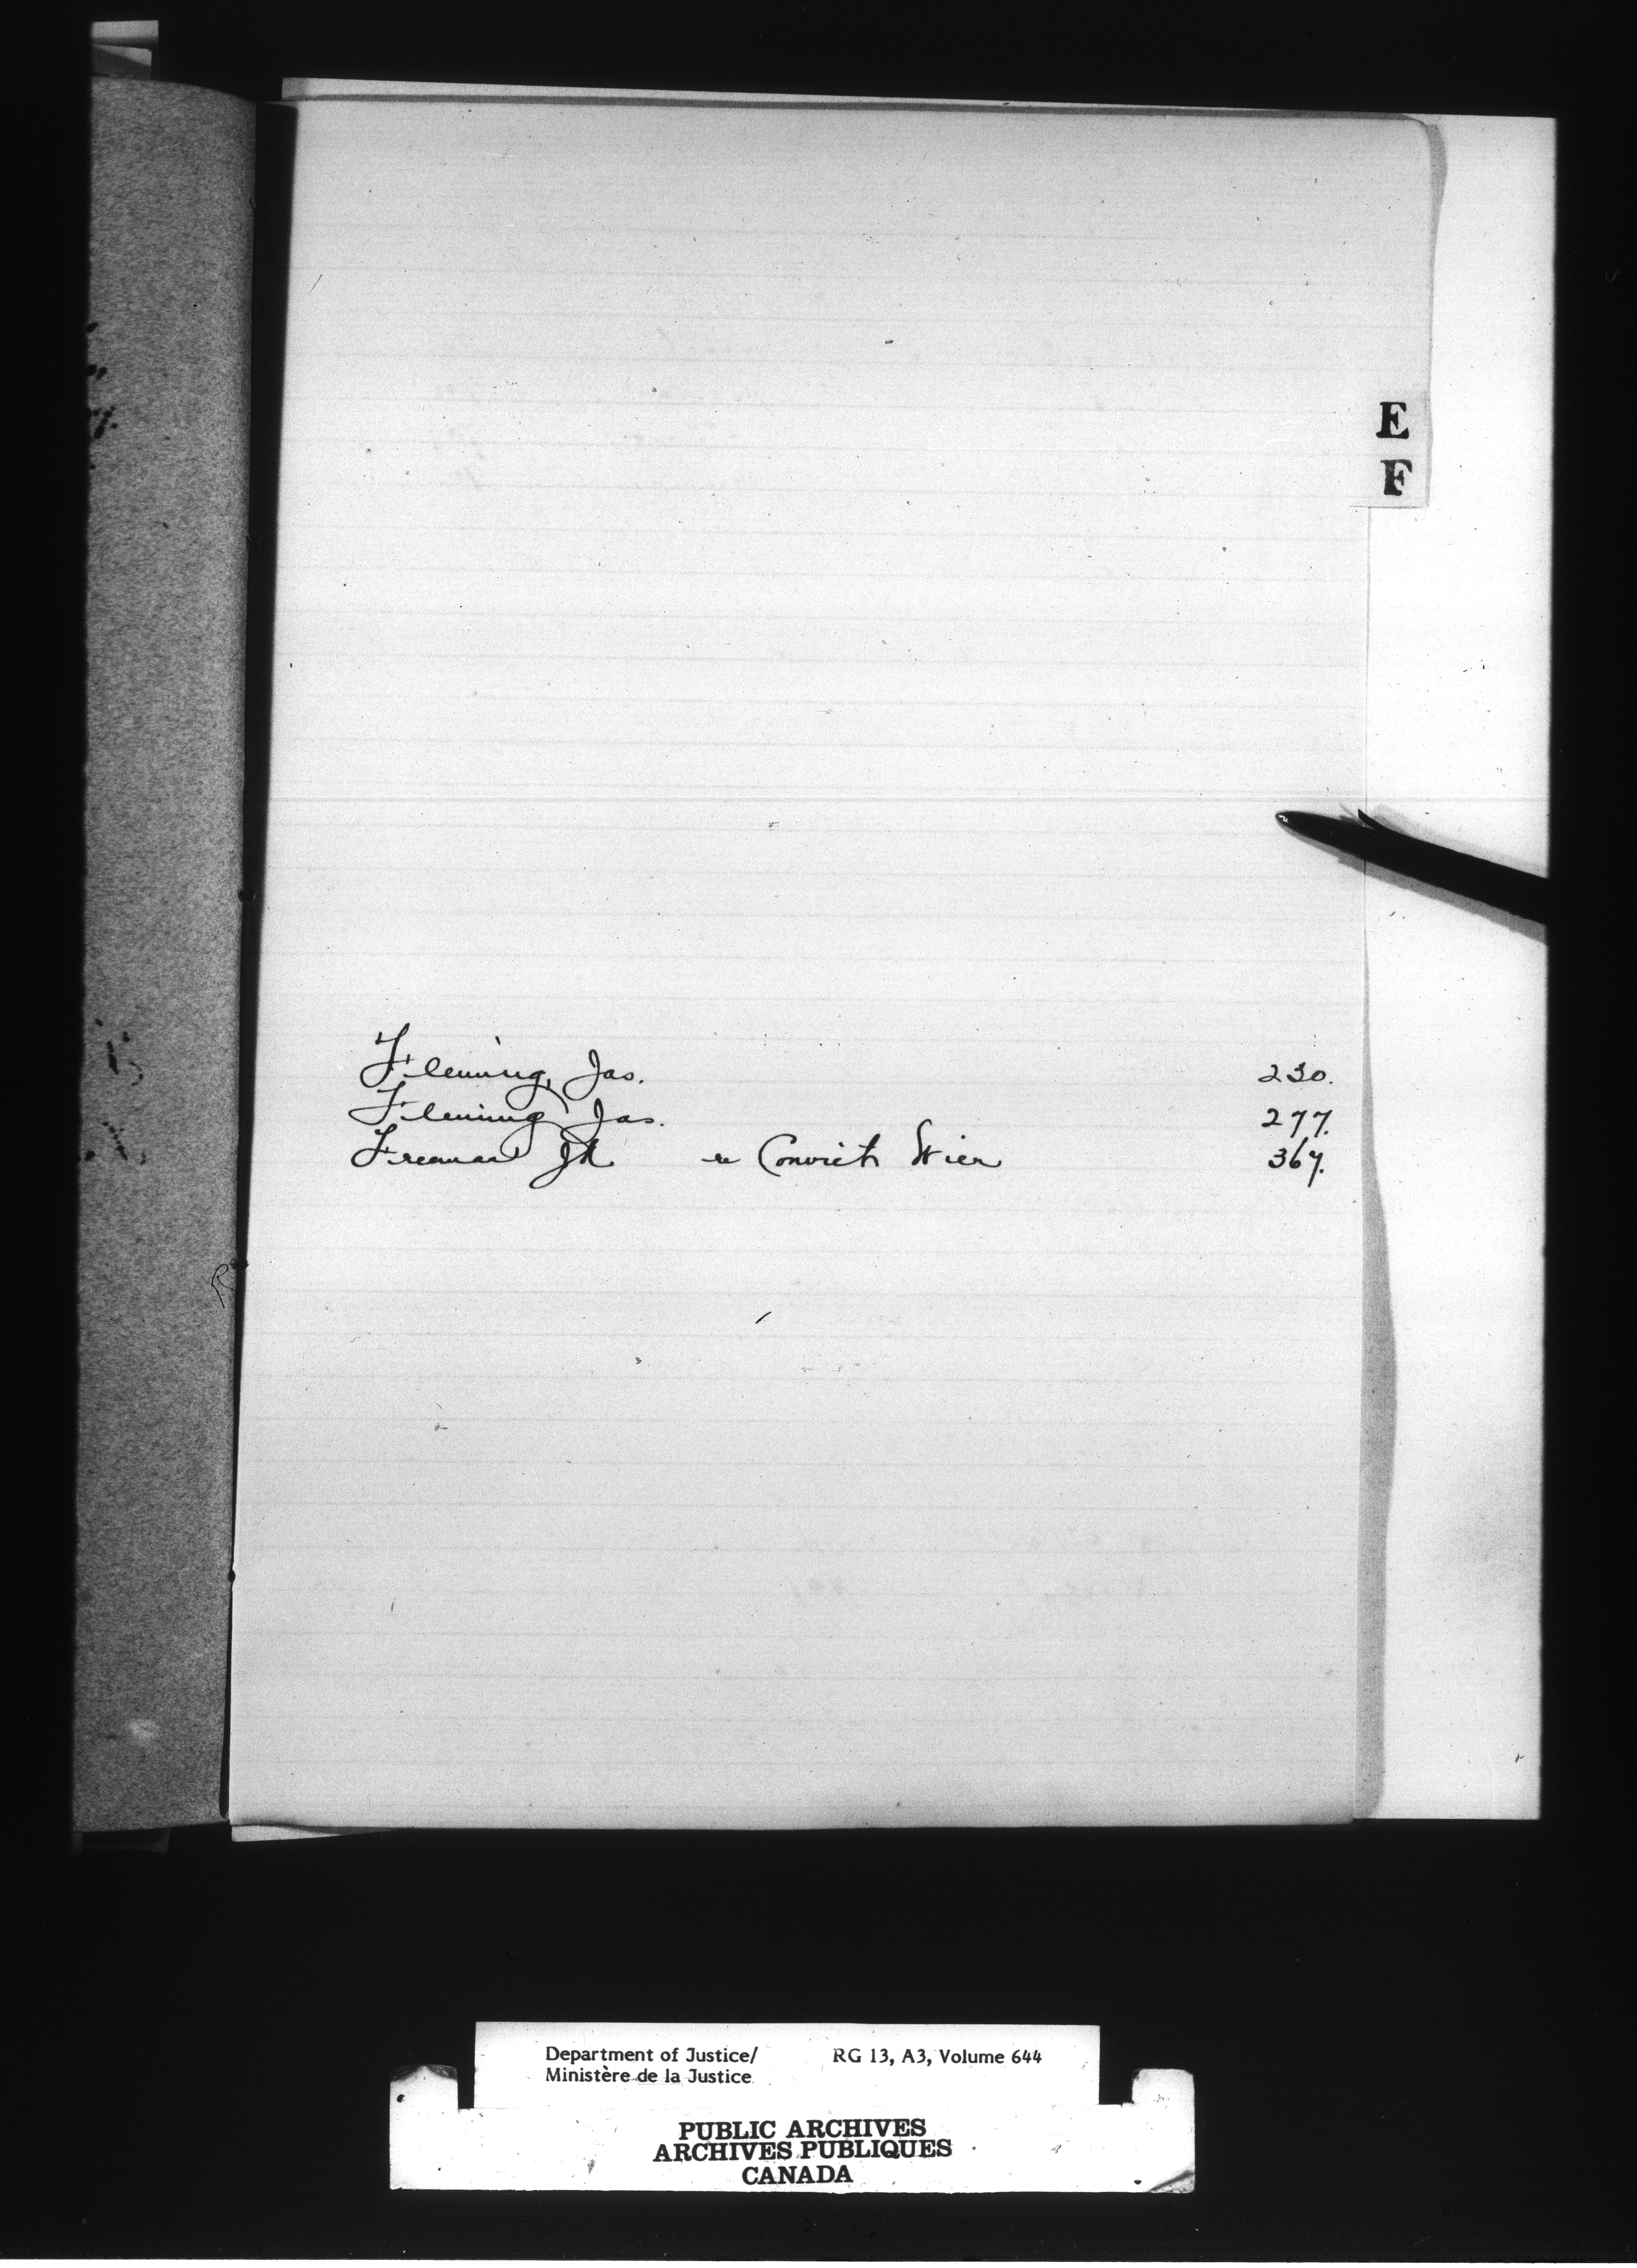 E
F
Fleming, Jas. 230.
Fleming Jas. 277.
Freeman J re Convict Wier 367.
Department of Justice/ RG 13, A3, Volume 644
Ministère de la Justice
PUBLIC ARCHIVES
ARCHIVES PUBLIQUES
CANADA